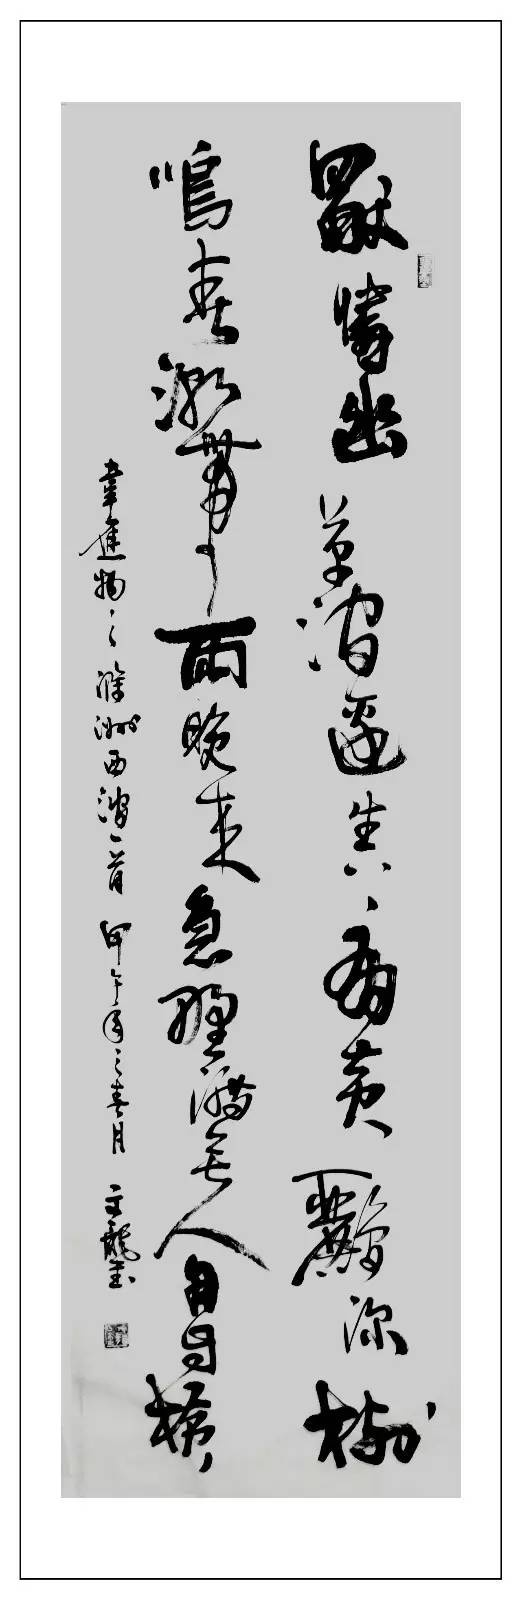 獨憐幽草澗邊生上有黄鸝深樹
鳴春潮帶雨晚來急野渡無人舟自橫
韋應物之滁州西澗一首 甲午年之春月 文龍書